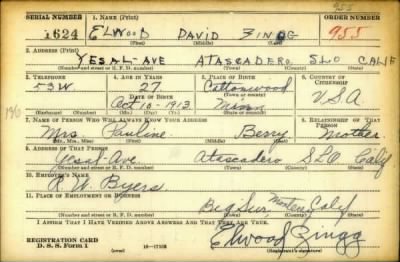 955
SERIAL NUMBER 1. NAME (Print) ORDER NUMBER
1624 ELWOOD DAVID ZINGG 955
(First) (Middle) (Last)
2. ADDRESS (Print)
YESAL-AVE ATASCADERO SLO CALIF
(Number and street or R. F. D. number) (Town) (County) (State)
3. TELEPHONE 4. AGE IN YEARS 5. PLACE OF BIRTH 6. COUNTRY OF CITIZENSHIP
53W 27 Cottonwood
DATE OF BIRTH (Town or county)
Oct 10-1913 Minn U.S.A
(Mo.) (Day) (Yr.) (State or country)
7. NAME OF PERSON WHO WILL ALWAYS KNOW YOUR ADDRESS 8. RELATIONSHIP OF THAT PERSON
Mrs Pauline Berry Mother
(Mr., Mrs., Miss) (First) (Middle) (Last)
9. ADDRESS OF THAT PERSON
Yesal-Ave Atascadero SLO Calif
(Number and street or R. F. D. number) (Town) (County) (State)
10. EMPLOYER'S NAME
R. W. Byers
11. PLACE OF EMPLOYMENT OR BUSINESS
Big Sur, Monterey Calif
(Number and street or R. F. D. number) (Town) (County) (State)
I AFFIRM THAT I HAVE VERIFIED ABOVE ANSWERS AND THAT THEY ARE TRUE.
REGISTRATION CARD
D. S. S. Form 1 (over) 16-17105 Elwood Zingg
(Registrant's signature)